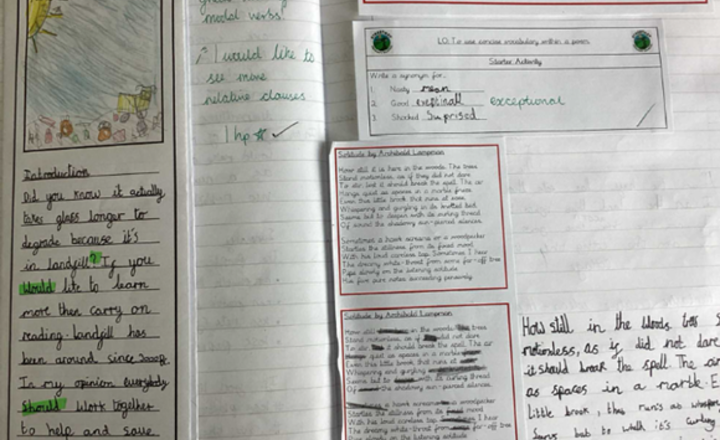 modal verbs!
I would like to
see more
relative clauses
1 hp
Introduction
Did you know it actually
takes glass longer to
degrade because it's
in landfill? If you
would like to learn
more then carry on
reading. Landfill has
been around since
In my opinion everybody
should work together
to help and save
LO: To use concise vocabulary within a poem.
Starter Activity
Write a synonym for...
1. Nasty mean
2. Good exeptinall exceptional
3. Shocked Suprised
Solitude by Archibald Lampman
How still it is here in the woods. The trees
Stand motionless, as if they did not dare
To stir, lest it should break the spell. The air
Hangs quiet as spaces in a marble frieze.
Even this little brook, that runs at ease,
Whispering and gurgling in its knotted bed,
Seems but to deepen with its curling thread
Of sound the shadowy sun-pierced silences.
Sometimes a hawk screams or a woodpecker
Startles the stillness from its fixed mood
With his loud careless tap. Sometimes I hear
The dreamy white-throat from some far-off tree
Pipe slowly on the listening solitude
His five pure notes succeeding pensively.
Solitude by Archibald Lampman
How still in the woods. The trees
Stand motionless, as if did not dare
To stir, it should break the spell. The air
quiet as spaces in a marble
Even this little brook, that runs at
Whispering and gurgling
Seems but to with its curling thread
Of the shadowy sun-pierced silences.
a hawk screams a woodpecker
Startles the stillness from fixed mood
With his loud careless tap. I hear
The dreamy white-throat from far-off tree
Pipe slowly on the listening solitude
How still in the woods tres
motionless, as if did not dare
it should break the spell. The
as spaces in a marble
little brook, this runs at
but to with it's curling